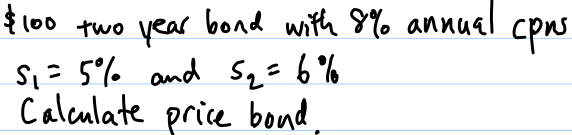 $100 two year bond with 8% annual cpns
s₁ = 5% and s₂ = 6%
Calculate price bond.